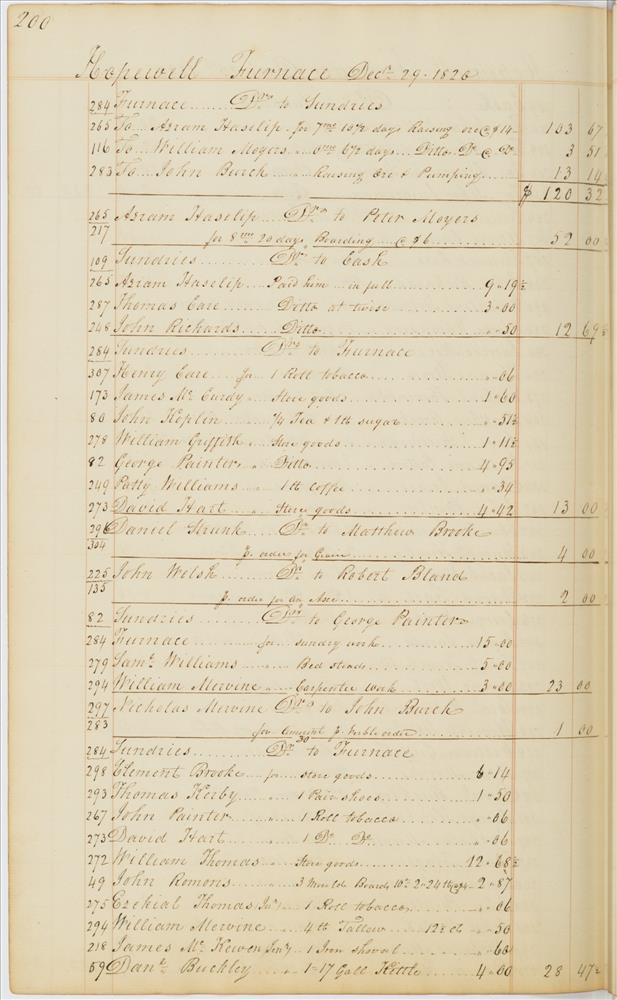 200
Hopewell Furnace Decr 29. 1820
284 Furnace ...... Drs to Sundries
265 To Abram Haselip for 7mo 10½ days Raising ore @ $14 103 67
116 To William Moyers " 6½ days Ditto Do @ 3 51
283 To John Burch " Raising Ore & Pumping 13 14
$ 120 32
265 Abram Haselip Dr to Peter Moyers
217 for 8mo 20 days Boarding @ $6 52 00
109 Sundries Drs to Cash
265 Abram Haselip Paid him in full 9 " 19½
287 Thomas Care Ditto at twise 3 " 00
248 John Richards Ditto " 50 12 69½
284 Sundries Drs to Furnace
307 Henry Care for 1 Roll tobacco " 06
173 James Mc Curdy " Store goods 1 " 60
80 John Koplin " ¼ Tea & 1 lb sugar " 51½
278 William Griffith " Store goods 1 " 11½
82 George Painter " Ditto 4 " 95
249 Patty Williams " 1 lb Coffee " 34
273 David Hart " Store goods 4 " 42 13 00
296 Daniel Strunk Dr to Matthew Brooke
304 P. order for Grain 4 00
225 John Welsh Dr to Robert Bland
135 P. order for an Axe 2 00
82 Sundries Drs to George Painter
284 Furnace for sundry work 15 " 00
279 Saml Williams " Bed steads 5 " 00
294 William Mervine " Carpenter work 3 " 00 23 00
297 Nicholas Mervine Dr to John Burch
283 for amount P. verble order 1 00
30
284 Sundries Drs to Furnace
298 Clement Brooke for store goods 6 " 14
293 Thomas Kerby " 1 Pair shoes 1 " 50
267 John Painter " 1 Roll tobacco " 06
273 David Hart " 1 Do Do " 06
272 William Thomas " Store goods 12 " 68½
49 John Romons " 3 Mould Boards 2 " 87
275 Ezekial Thomas Junr 1 Roll tobacco " 06
294 William Mervine " 4 lb Tallow 12½ ct " 50
218 James Mc Kewen Senr " 1 Iron shovel " 60
59 Danl Buckley " 1 = 17 Gall Kittle 4 " 00 28 47½